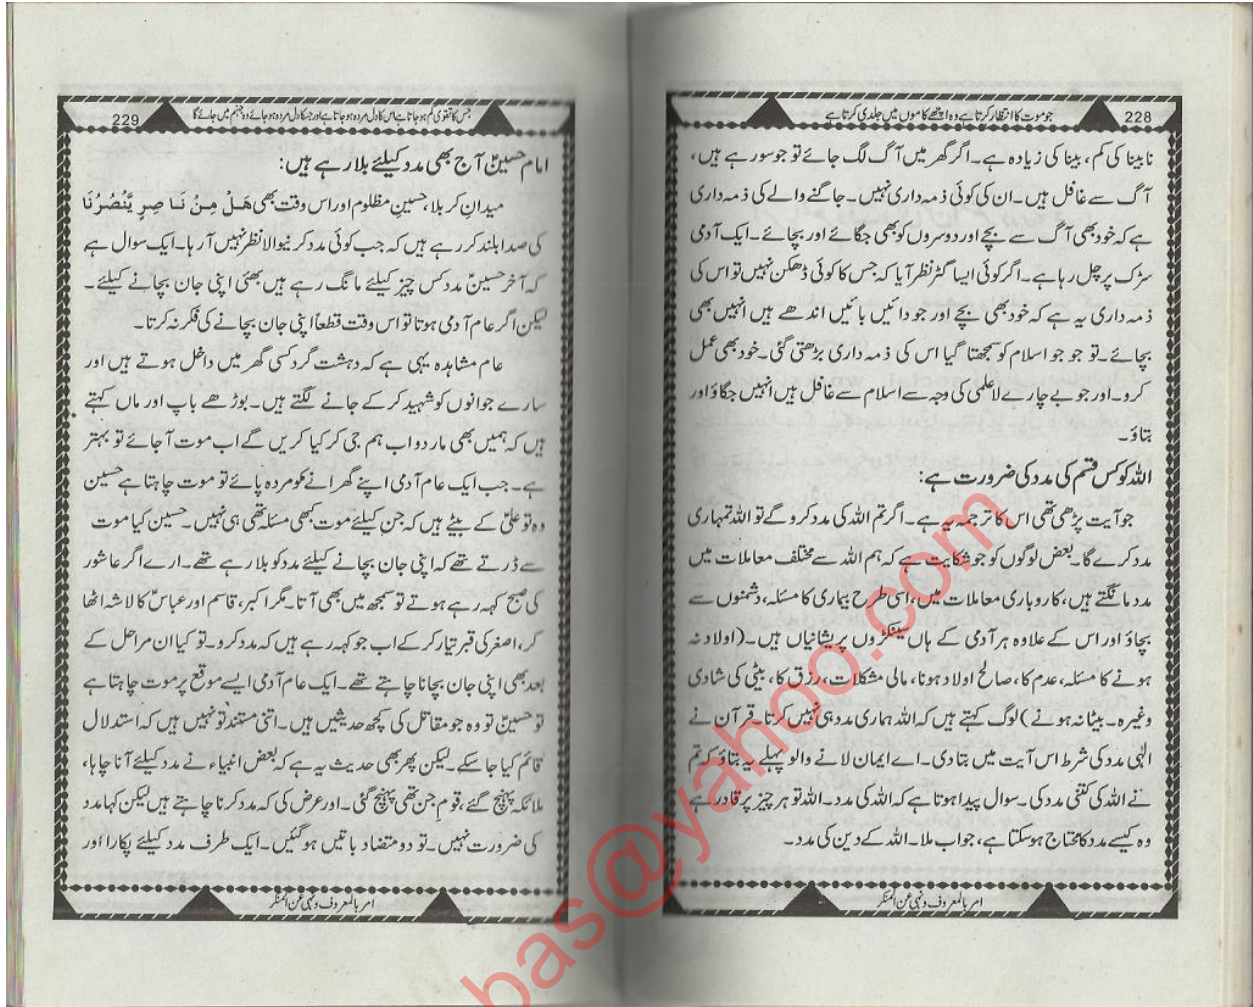 228
جو موت کا انتظار کرتا ہے وہ اچھے کاموں میں جلدی کرتا ہے
نابینا کی کم، بینا کی زیادہ ہے۔ اگر گھر میں آگ لگ جائے تو جو سو رہے ہیں،
آگ سے غافل ہیں۔ ان کی کوئی ذمہ داری نہیں۔ جاگنے والے کی ذمہ داری
ہے کہ خود بھی آگ سے بچے اور دوسروں کو بھی جگائے اور بچائے۔ ایک آدمی
سڑک پر چل رہا ہے۔ اگر کوئی ایسا گٹر نظر آیا کہ جس کا کوئی ڈھکن نہیں تو اس کی
ذمہ داری یہ ہے کہ خود بھی بچے اور جو دائیں بائیں اندھے ہیں انہیں بھی
بچائے۔ تو جو جو اسلام کو سمجھتا گیا اس کی ذمہ داری بڑھتی گئی۔ خود بھی عمل
کرو۔ اور جو بے چارے لاعلمی کی وجہ سے اسلام سے غافل ہیں انہیں جگاؤ اور
بتاؤ۔
اللہ کو کس قسم کی مدد کی ضرورت ہے:
جو آیت پڑھی تھی اس کا ترجمہ یہ ہے۔ اگر تم اللہ کی مدد کرو گے تو اللہ تمہاری
مدد کرے گا۔ بعض لوگوں کو جو شکایت ہے کہ ہم اللہ سے مختلف معاملات میں
مدد مانگتے ہیں، کاروباری معاملات میں، اسی طرح بیماری کا مسئلہ، دشمنوں سے
بچاؤ اور اس کے علاوہ ہر آدمی کے ہاں سینکڑوں پریشانیاں ہیں۔ (اولاد نہ
ہونے کا مسئلہ، عدم کا، صالح اولاد ہونا، مالی مشکلات، رزق کا، بیٹی کی شادی
وغیرہ۔ بیٹا نہ ہونے) لوگ کہتے ہیں کہ اللہ ہماری مدد ہی نہیں کرتا۔ قرآن نے
الٰہی مدد کی شرط اس آیت میں بتا دی۔ اے ایمان لانے والو پہلے یہ بتاؤ کہ تم
نے اللہ کی کتنی مدد کی۔ سوال پیدا ہوتا ہے کہ اللہ کی مدد۔ اللہ تو ہر چیز پر قادر ہے
وہ کیسے مدد کا محتاج ہو سکتا ہے، جواب ملا۔ اللہ کے دین کی مدد۔
امر بالمعروف و نہی عن المنکر
229
جس کا تقویٰ کم ہو جاتا ہے اس کا دل مردہ ہو جاتا ہے اور جسکا دل مردہ ہو جائے وہ جہنم میں جائے گا
امام حسینؑ آج بھی مدد کیلئے بلا رہے ہیں:
میدانِ کربلا، حسینِ مظلوم اور اس وقت بھی هَلْ مِنْ نَاصِرٍ يَّنْصُرْنَا
کی صدا بلند کر رہے ہیں کہ جب کوئی مدد کرنیوالا نظر نہیں آ رہا۔ ایک سوال ہے
کہ آخر حسینؑ مدد کس چیز کیلئے مانگ رہے ہیں بھئی اپنی جان بچانے کیلئے۔
لیکن اگر عام آدمی ہوتا تو اس وقت قطعاً اپنی جان بچانے کی فکر نہ کرتا۔
عام مشاہدہ یہی ہے کہ دہشت گرد کسی گھر میں داخل ہوتے ہیں اور
سارے جوانوں کو شہید کر کے جانے لگتے ہیں۔ بوڑھے باپ اور ماں کہتے
ہیں کہ ہمیں بھی مار دو اب ہم جی کر کیا کریں گے اب موت آ جائے تو بہتر
ہے۔ جب ایک عام آدمی اپنے گھرانے کو مردہ پائے تو موت چاہتا ہے حسین
وہ تو علیؑ کے بیٹے ہیں کہ جن کیلئے موت کبھی مسئلہ تھی ہی نہیں۔ حسین کیا موت
سے ڈرتے تھے کہ اپنی جان بچانے کیلئے مدد کو بلا رہے تھے۔ ارے اگر عاشور
کی صبح کہہ رہے ہوتے تو سمجھ میں بھی آتا۔ مگر اکبر، قاسم اور عباسؑ کا لاشہ اٹھا
کر، اصغر کی قبر تیار کر کے اب جو کہہ رہے ہیں کہ مدد کرو۔ تو کیا ان مراحل کے
بعد بھی اپنی جان بچانا چاہتے تھے۔ ایک عام آدمی ایسے موقع پر موت چاہتا ہے
تو حسینؑ تو وہ جو مقاتل کی کچھ حدیثیں ہیں۔ اتنی مستند تو نہیں ہیں کہ استدلال
قائم کیا جا سکے۔ لیکن پھر بھی حدیث یہ ہے کہ بعض انبیاء نے مدد کیلئے آنا چاہا،
ملائکہ پہنچ گئے، قومِ جن تھی پہنچ گئی۔ اور عرض کی کہ مدد کرنا چاہتے ہیں لیکن کہا مدد
کی ضرورت نہیں۔ تو دو متضاد باتیں ہو گئیں۔ ایک طرف مدد کیلئے پکارا اور
امر بالمعروف و نہی عن المنکر
bas@yahoo.com